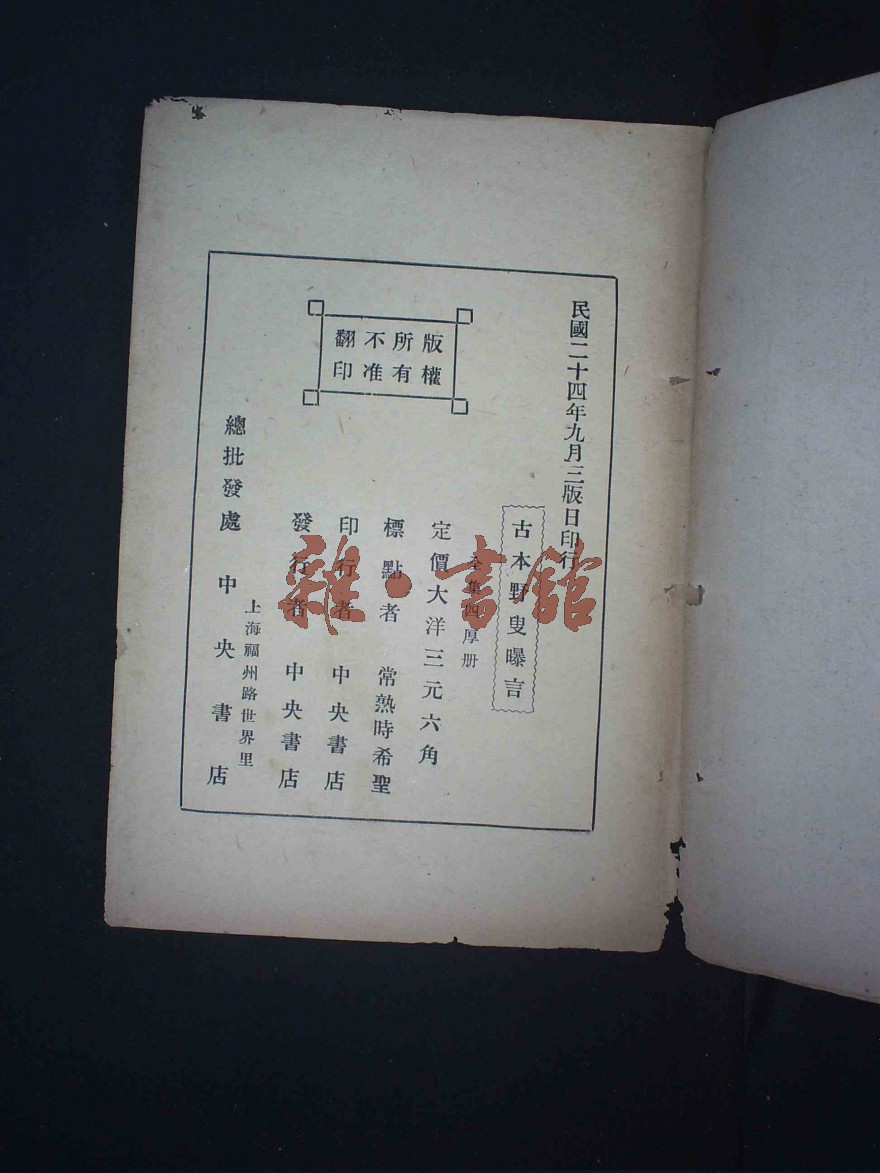 民國二十四年九月三版日印行
古本野叟曝言
全集四厚册
定價大洋三元六角
標點者 常熟時希聖
印行者 中央書店
發行者 中央書店
上海福州路世界里
總批發處 中央書店
版權
所有
不准
翻印
雜·書館